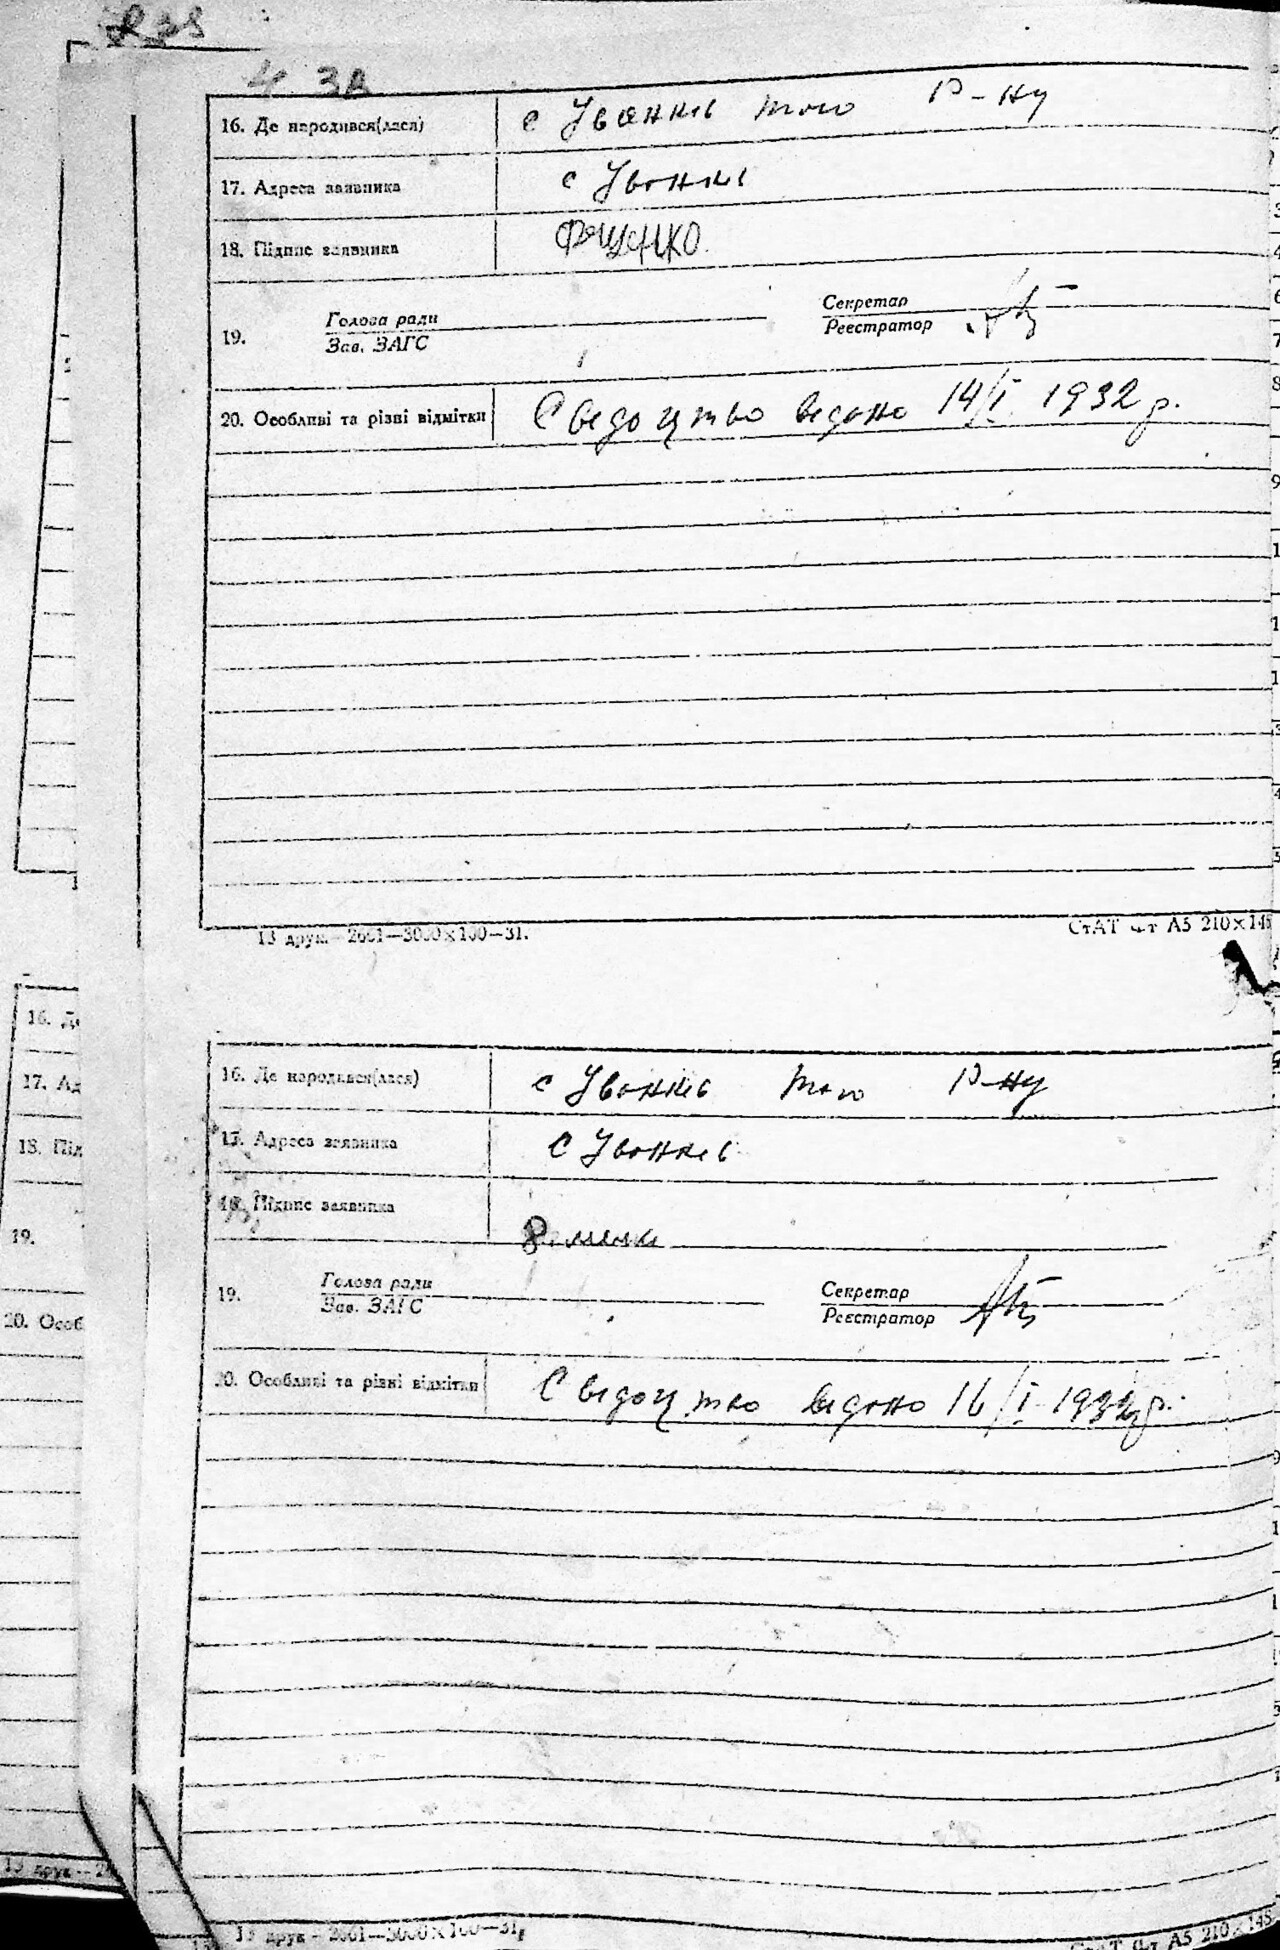 4 зв
16. Де народився(лася) с Іванків того р-ну
17. Адреса заявника с Іванків
18. Підпис заявника Фещенко
19. Голова ради
Зав. ЗАГС
Секретар
Реєстратор
20. Особливі та різні відмітки Свідоцтво видано 14/I 1932 р.
13 друк.—2661—3000×100—31.
СтАТ Ф-т А5 210×148
16. Де народився(лася) с Іванків того р-ну
17. Адреса заявника с Іванків
18. Підпис заявника
19. Голова ради
Зав. ЗАГС
Секретар
Реєстратор
20. Особливі та різні відмітки Свідоцтво видано 16/I 1932 р.
13 друк.—2661—3000×100—31.
СтАТ Ф-т А5 210×148